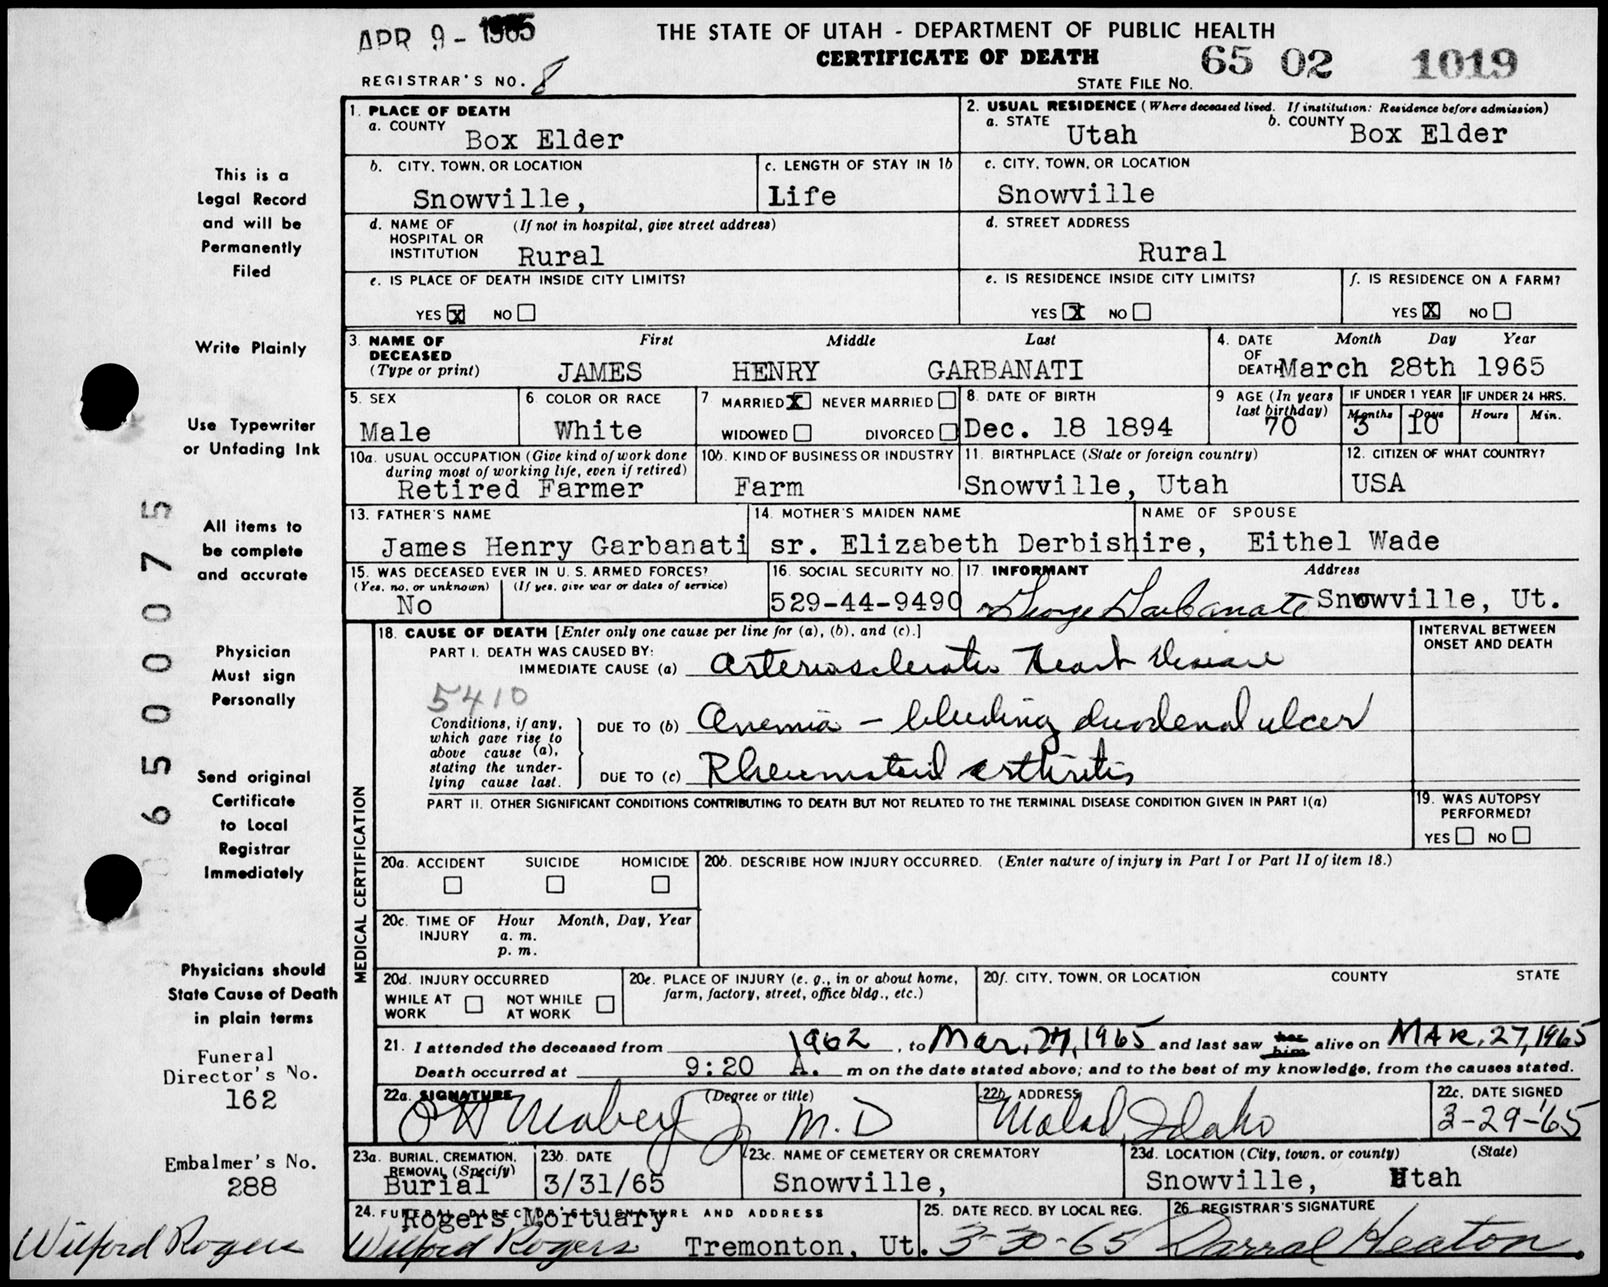 APR 9 - 1965
THE STATE OF UTAH - DEPARTMENT OF PUBLIC HEALTH
CERTIFICATE OF DEATH
65 02 1019
REGISTRAR'S NO. 8
STATE FILE NO.
1. PLACE OF DEATH
a. COUNTY Box Elder
2. USUAL RESIDENCE (Where deceased lived. If institution: Residence before admission)
a. STATE Utah b. COUNTY Box Elder
b. CITY, TOWN, OR LOCATION Snowville,
c. LENGTH OF STAY IN 1b Life
c. CITY, TOWN, OR LOCATION Snowville
d. NAME OF HOSPITAL OR INSTITUTION (If not in hospital, give street address) Rural
d. STREET ADDRESS Rural
e. IS PLACE OF DEATH INSIDE CITY LIMITS?
YES X NO
e. IS RESIDENCE INSIDE CITY LIMITS?
YES X NO
f. IS RESIDENCE ON A FARM?
YES X NO
3. NAME OF DECEASED (Type or print)
First Middle Last
JAMES HENRY GARBANATI
4. DATE OF DEATH Month Day Year
March 28th 1965
5. SEX Male
6. COLOR OR RACE White
7. MARRIED X NEVER MARRIED
WIDOWED DIVORCED
8. DATE OF BIRTH Dec. 18 1894
9 AGE (In years last birthday) 70
IF UNDER 1 YEAR Months 3 Days 10
IF UNDER 24 HRS. Hours Min.
10a. USUAL OCCUPATION (Give kind of work done during most of working life, even if retired)
Retired Farmer
10b. KIND OF BUSINESS OR INDUSTRY Farm
11. BIRTHPLACE (State or foreign country) Snowville, Utah
12. CITIZEN OF WHAT COUNTRY? USA
13. FATHER'S NAME James Henry Garbanati sr.
14. MOTHER'S MAIDEN NAME Elizabeth Derbishire,
NAME OF SPOUSE Eithel Wade
15. WAS DECEASED EVER IN U. S. ARMED FORCES?
(Yes, no, or unknown) (If yes, give war or dates of service)
No
16. SOCIAL SECURITY NO. 529-44-9490
17. INFORMANT Address
George Garbanati Snowville, Ut.
18. CAUSE OF DEATH [Enter only one cause per line for (a), (b), and (c).]
INTERVAL BETWEEN ONSET AND DEATH
PART I. DEATH WAS CAUSED BY:
IMMEDIATE CAUSE (a) Arteriosclerotic Heart Disease
5410
Conditions, if any, which gave rise to above cause (a), stating the underlying cause last.
DUE TO (b) Anemia - bleeding duodenal ulcer
DUE TO (c) Rheumatoid arthritis
PART II. OTHER SIGNIFICANT CONDITIONS CONTRIBUTING TO DEATH BUT NOT RELATED TO THE TERMINAL DISEASE CONDITION GIVEN IN PART I(a)
19. WAS AUTOPSY PERFORMED?
YES NO
MEDICAL CERTIFICATION
20a. ACCIDENT SUICIDE HOMICIDE
20b. DESCRIBE HOW INJURY OCCURRED. (Enter nature of injury in Part I or Part II of item 18.)
20c. TIME OF INJURY Hour Month, Day, Year
a. m.
p. m.
20d. INJURY OCCURRED
WHILE AT WORK NOT WHILE AT WORK
20e. PLACE OF INJURY (e. g., in or about home, farm, factory, street, office bldg., etc.)
20f. CITY, TOWN, OR LOCATION COUNTY STATE
21. I attended the deceased from 1962, to Mar, 27, 1965 and last saw her him alive on MAR. 27, 1965
Death occurred at 9:20 A. m on the date stated above; and to the best of my knowledge, from the causes stated.
22a. SIGNATURE (Degree or title)
O H Mabey Jr M.D
22b. ADDRESS Malad, Idaho
22c. DATE SIGNED 3-29-65
23a. BURIAL, CREMATION, REMOVAL (Specify) Burial
23b. DATE 3/31/65
23c. NAME OF CEMETERY OR CREMATORY Snowville,
23d. LOCATION (City, town, or county) (State)
Snowville, Utah
24. FUNERAL DIRECTOR'S SIGNATURE AND ADDRESS
Rogers Mortuary
Wilford Rogers Tremonton, Ut.
25. DATE RECD. BY LOCAL REG. 3-30-65
26. REGISTRAR'S SIGNATURE Darral Heaton
This is a
Legal Record
and will be
Permanently
Filed
Write Plainly
Use Typewriter
or Unfading Ink
All items to
be complete
and accurate
Physician
Must sign
Personally
Send original
Certificate
to Local
Registrar
Immediately
Physicians should
State Cause of Death
in plain terms
Funeral
Director's No.
162
Embalmer's No.
288
Wilford Rogers
6500075